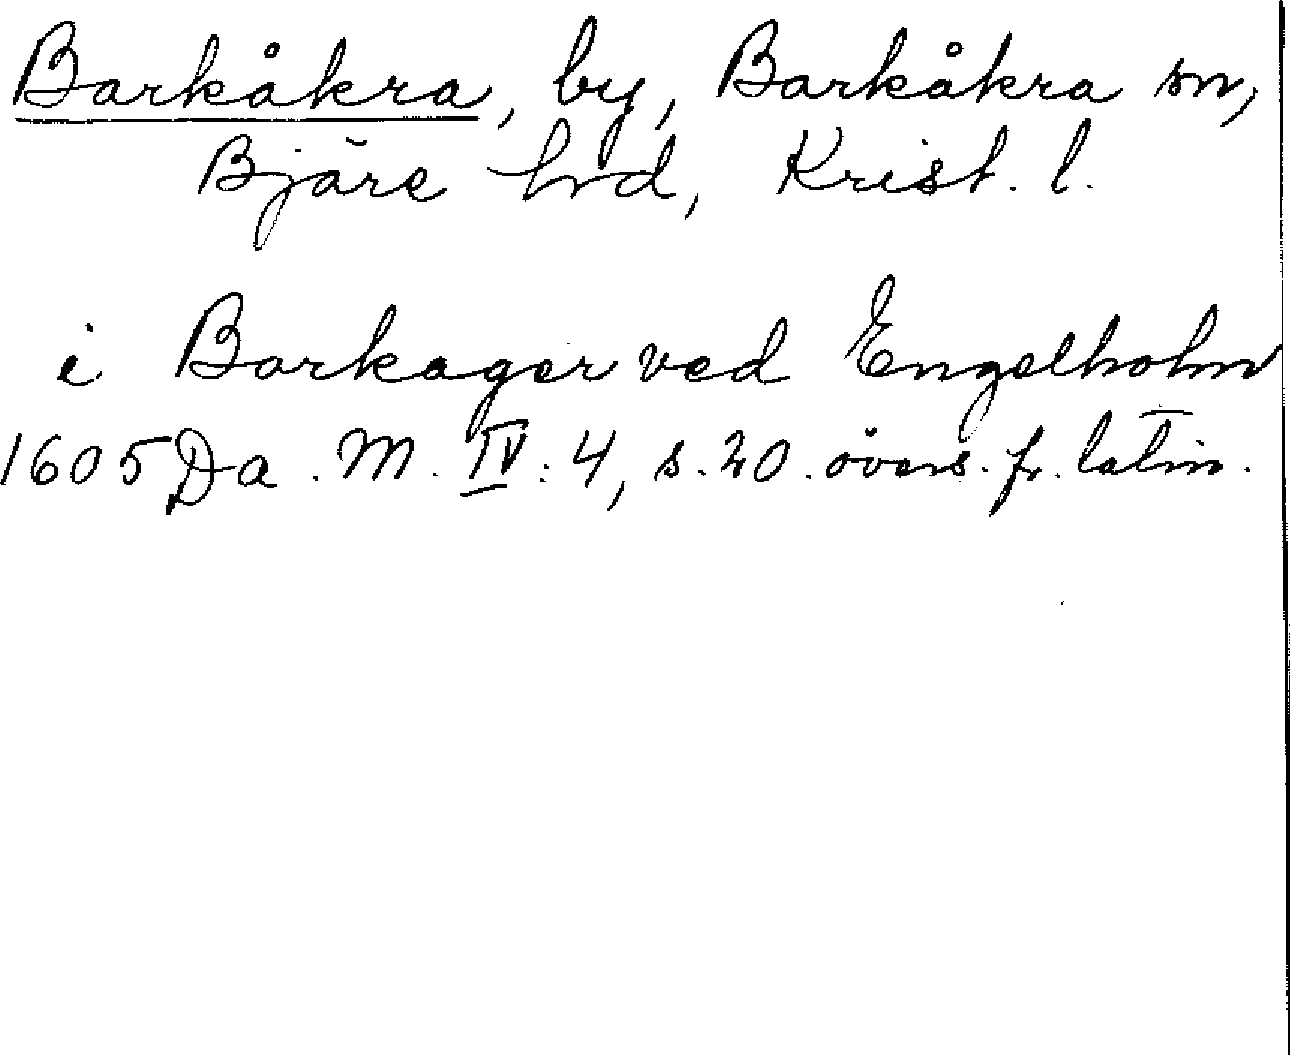 Barkåkra, by, Barkåkra sn,
Bjäre hrd, Krist. l.
i Barkager ved Engelholm
1605 Da. M. IV: 4, s. 20. övers. fr. latin.